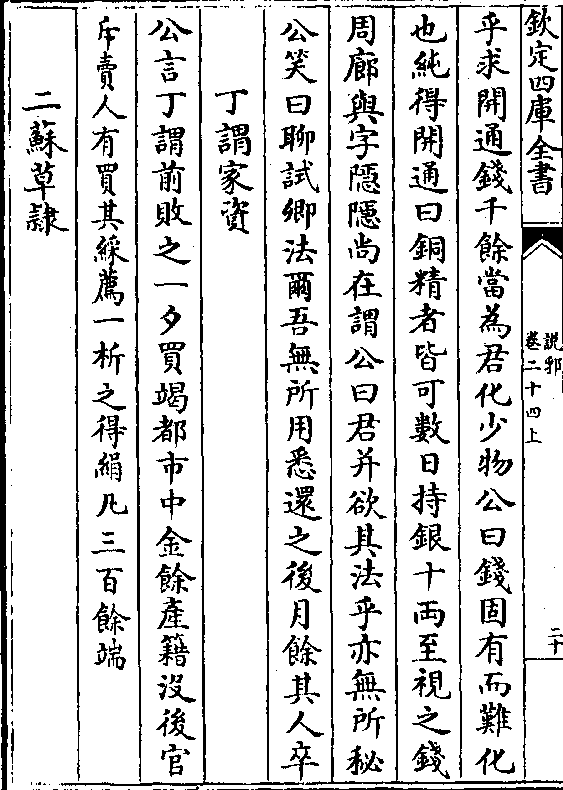 欽定四庫全書
說郛
卷二十四上
二十
乎求開通錢千餘當為君化少物公曰錢固有而難化
也純得開通曰銅精者皆可數日持銀十兩至視之錢
周廊與字隱隱尚在謂公曰君并欲其法乎亦無所秘
公笑曰聊試卿法爾吾無所用悉還之後月餘其人卒
丁謂家資
公言丁謂前敗之一夕買竭都市中金餘產籍没後官
斥賣人有買其綵薦一析之得絹凡三百餘端
二蘇草隷